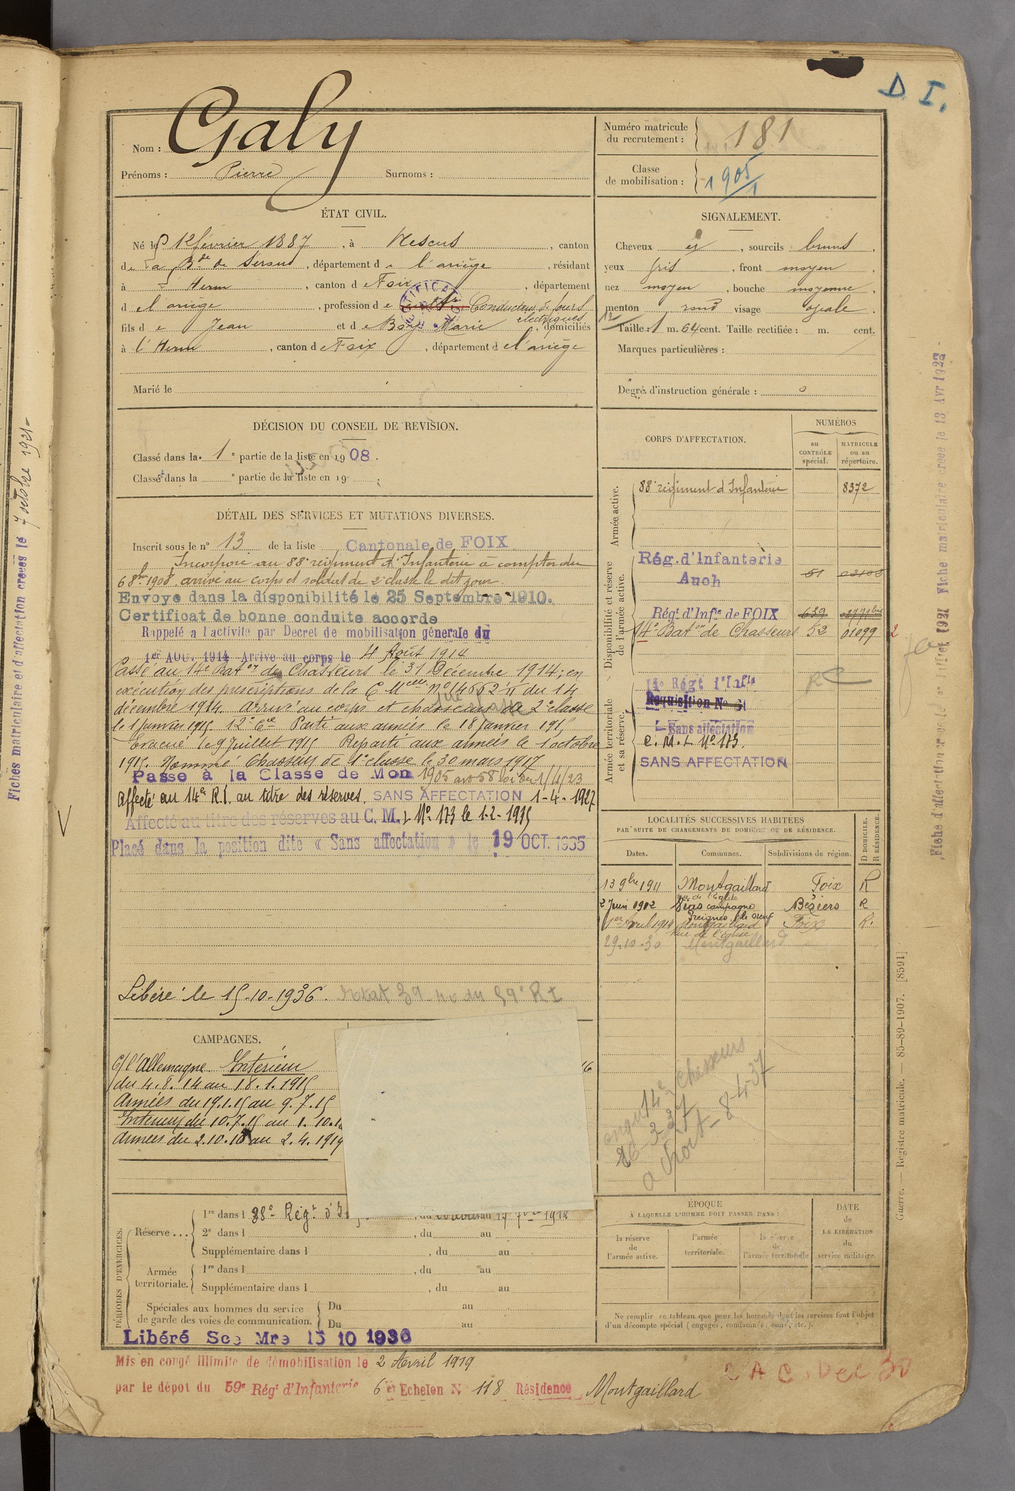 D. I.
Nom : Galy
Prénoms : Pierre Surnoms :
Numéro matricule du recrutement : 181
Classe de mobilisation : 1905/1
ÉTAT CIVIL.
Né le 12 février 1887, à Nescus, canton
de La Bde de Serou, département de l'ariège, résidant
à l'Herm, canton de Foix, département
d el ariège, profession de Conducteur de fours électriques
fils de Jean et de Marie, domiciliés
à l'Herm, canton de Foix, département d el'ariège
Marié le
SIGNALEMENT.
Cheveux , sourcils bruns
yeux gris, front moyen
nez moyen, bouche moyenne
menton rond visage ovale
Taille : 1 m. 64 cent. Taille rectifiée : m. cent.
Marques particulières :
Degré d'instruction générale :
DÉCISION DU CONSEIL DE REVISION.
Classé dans la 1e partie de la liste en 1908.
Classé dans la e partie de la liste en 19
DÉTAIL DES SERVICES ET MUTATIONS DIVERSES.
Inscrit sous le n° 13 de la liste Cantonale de FOIX
Incorporé au 88e régiment d'Infanterie à compter du
6 8bre 1908 arrivé au corps et soldat de 2e classe le dit jour.
Envoyé dans la disponibilité le 25 Septembre 1910.
Certificat de bonne conduite accordé
Rappelé a l'activité par Décret de mobilisation générale du
1er AOU. 1914 Arrivé au corps le 4 Août 1914
Passé au 14e Baton de Chasseurs le 31 Décembre 1914, en
exécution des prescriptions de la Cre Melle No 14662 du 14
décembre 1914. Arrivé au corps et chasseur de 2e classe
le 1 janvier 1915. 12e Cie Parti aux armées le 18 janvier 1915
Evacué le 9 juillet 1915 Reparti aux armées le 1 octobre
1915. Nommé Chasseur de 1e classe le 30 mars 1917
Passé à la Classe de Mon 1905
Affecté au 14e R.I. au titre des réserves. SANS AFFECTATION 1-4-1927
Affecté au titre des réserves au C. M. I. No. 173 le 1-2-1935
Placé dans la position dite « Sans affectation » le 19 OCT. 1935
Libéré le 15-10-1936.
CORPS D'AFFECTATION.
NUMÉROS
au CONTRÔLE spécial.
MATRICULE ou au répertoire.
Armée active.
88e régiment d'Infanterie 8372
Disponibilité et réserve de l'armée active.
Rég. d'Infanterie Auch 51
Régt d'Infie de FOIX 639
14e Baton de Chasseurs 53 01099
Armée territoriale et sa réserve.
14e Régt d'Infie
Réquisition No
Sans affectation
C. M. I. No 173.
SANS AFFECTATION
LOCALITÉS SUCCESSIVES HABITÉES
PAR SUITE DE CHANGEMENTS DE DOMICILE OU DE RÉSIDENCE.
Dates. Communes. Subdivisions de région. D DOMICILE. R RÉSIDENCE.
13 9bre 1911 Montgaillard Foix R
2 Juin 1912 Vias campagne Béziers R
1er Avril 1914 Montgaillard Foix R.
rue de l'église
29-10-30 Montgaillard
14e Chasseurs
8-4-37
CAMPAGNES.
C/ l'Allemagne Intérieur
du 4.8.14 au 18.1.1915
Armées du 19.1.15 au 9.7.15
Intérieur du 10.7.15 au 1.10.1
Armées du 2.10.15 au 2.4.1919
PÉRIODES D'EXERCICES.
Réserve... 1re dans l 88e Régt d'I , du au 17 7bre 1912
2e dans l , du au
Supplémentaire dans l , du au
Armée territoriale. 1re dans l , du au
Supplémentaire dans l , du au
Spéciales aux hommes du service de garde des voies de communication. Du au
Du au
ÉPOQUE
À LAQUELLE L'HOMME DOIT PASSER DANS :
la réserve de l'armée active.
l'armée territoriale.
la réserve de l'armée territoriale
DATE de LA LIBÉRATION du service militaire.
Ne remplir ce tableau que pour les hommes dont les services font l'objet
d'un décompte spécial (engagés, condamnés, omis, etc.).
Libéré Sce Mre 15 10 1936
Mis en congé illimité de démobilisation le 2 Avril 1919
par le dépôt du 59e Régt d'Infanterie 6e Echelon N° 118 Résidence Montgaillard
Guerre. — Registre matricule. — 85-89-1907. [8591]
Fiches matriculaire et d'affectation créées le 7 octobre 1921